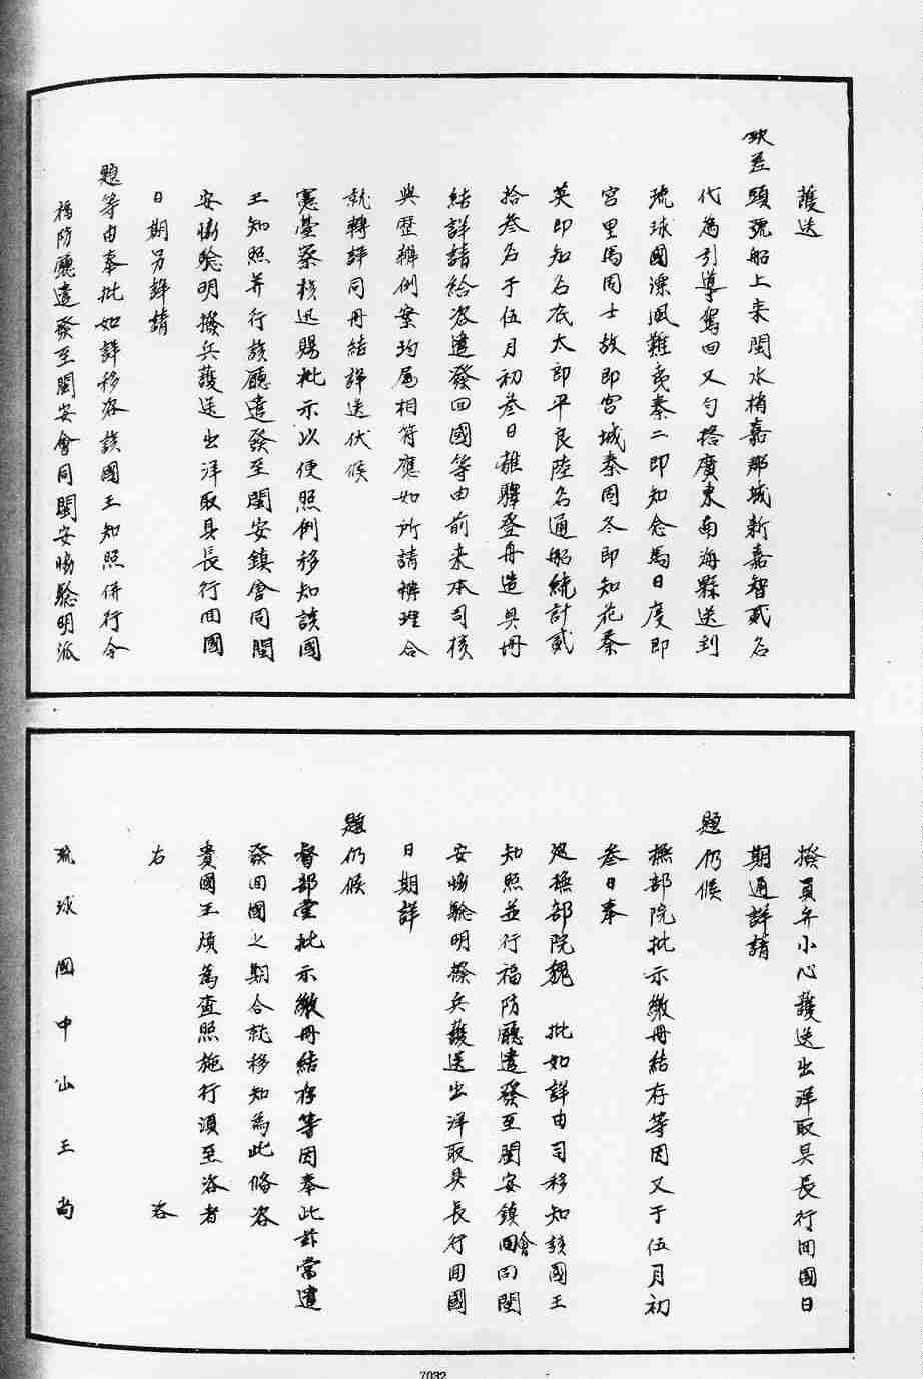 護送
欽差頭號船上來閩水梢嘉那城新嘉智貳名
代為引導駕回又勻搭廣東南海縣送到
琉球國漂風難夷秦二即知念馬日度即
宮里馬周士故即宮城秦周冬即知花秦
英即知名衣太郎平良陸名通船統計貳
拾叁名于伍月初叁日離驛登舟造具冊
結詳請給咨遣發回國等由前來本司核
與歷辦例案均屬相符應如所請辦理合
就轉詳同冊結詳送伏候
憲臺察核迅賜批示以便照例移知該國
王知照并行該廳遣發至閩安鎮會同閩
安協驗明撥兵護送出洋取具長行回國
日期另詳請
題等由奉批如詳移咨該國王知照併行令
福防廳遣發至閩安會同閩安協驗明派
撥員弁小心護送出洋取具長行回國日
期通詳請
題仍候
撫部院批示繳冊結存等因又于伍月初
叁日奉
廵撫部院魏 批如詳由司移知該國王
知照並行福防廳遣發至閩安鎮會同閩
安協驗明撥兵護送出洋取具長行回國
日期詳
題仍候
督部堂批示繳冊結存等因奉此茲當遣
發回國之期合就移知為此備咨
貴國王煩為查照施行須至咨者
右 咨
琉球國中山王尚
7032